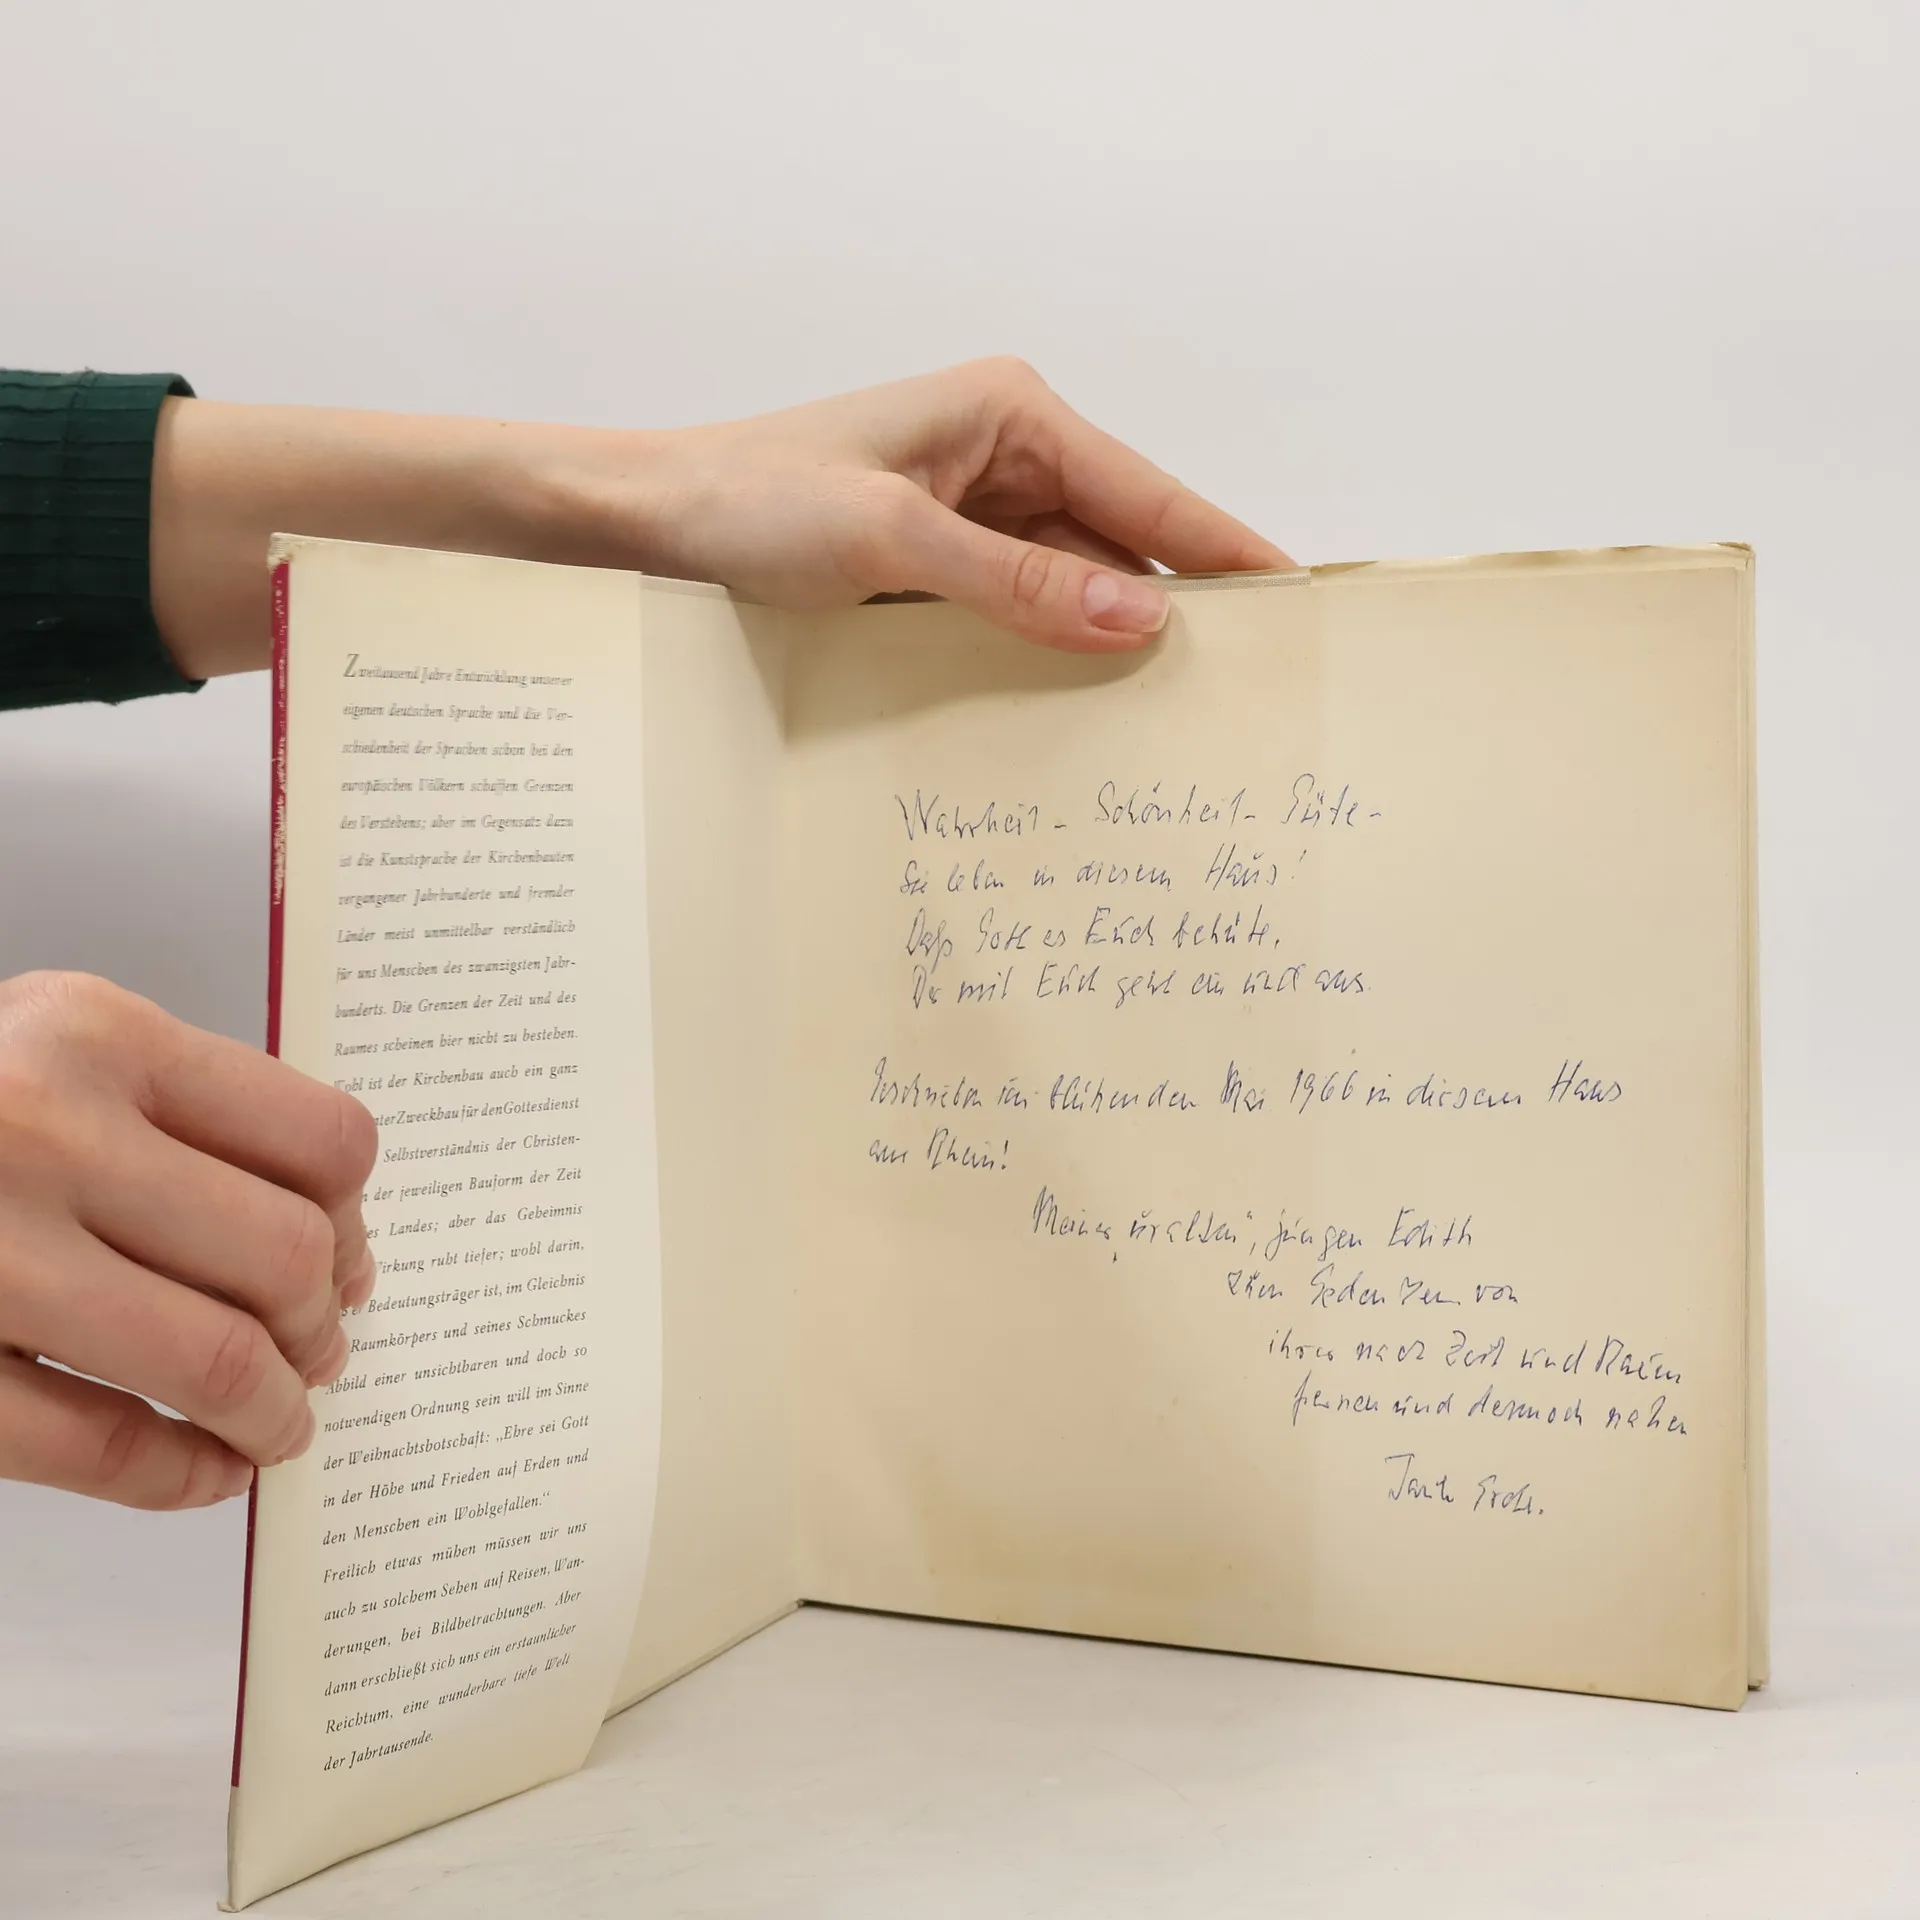 Zweitausend Jahre Entwicklung unserer
eigenen deutschen Sprache und die Ver-
schiedenheit der Sprachen schon bei den
europäischen Völkern schaffen Grenzen
des Verstehens; aber im Gegensatz dazu
ist die Kunstsprache der Kirchenbauten
vergangener Jahrhunderte und fremder
Länder meist unmittelbar verständlich
für uns Menschen des zwanzigsten Jahr-
hunderts. Die Grenzen der Zeit und des
Raumes scheinen hier nicht zu bestehen.
Wohl ist der Kirchenbau auch ein ganz
Zweckbau für den Gottesdienst
Selbstverständnis der Christen-
der jeweiligen Bauform der Zeit
Landes; aber das Geheimnis
Wirkung ruht tiefer; wohl darin,
er Bedeutungsträger ist, im Gleichnis
Raumkörpers und seines Schmuckes
Abbild einer unsichtbaren und doch so
notwendigen Ordnung sein will im Sinne
der Weihnachtsbotschaft: „Ehre sei Gott
in der Höhe und Frieden auf Erden und
den Menschen ein Wohlgefallen.“
Freilich etwas mühen müssen wir uns
auch zu solchem Sehen auf Reisen, Wan-
derungen, bei Bildbetrachtungen. Aber
dann erschließt sich uns ein erstaunlicher
Reichtum, eine wunderbare tiefe Welt
der Jahrtausende.
Wahrheit - Schönheit - Güte -
Sie leben in diesem Haus!
Daß Gott es Euch behüte,
Der mit Euch geht ein und aus.
Geschrieben im blühenden Mai 1966 in diesem Haus
am Rhein!
Meiner „uralten“, jungen Edith
zum Gedenken von
ihrer nach Zeit und Raum
fernen und dennoch nahen